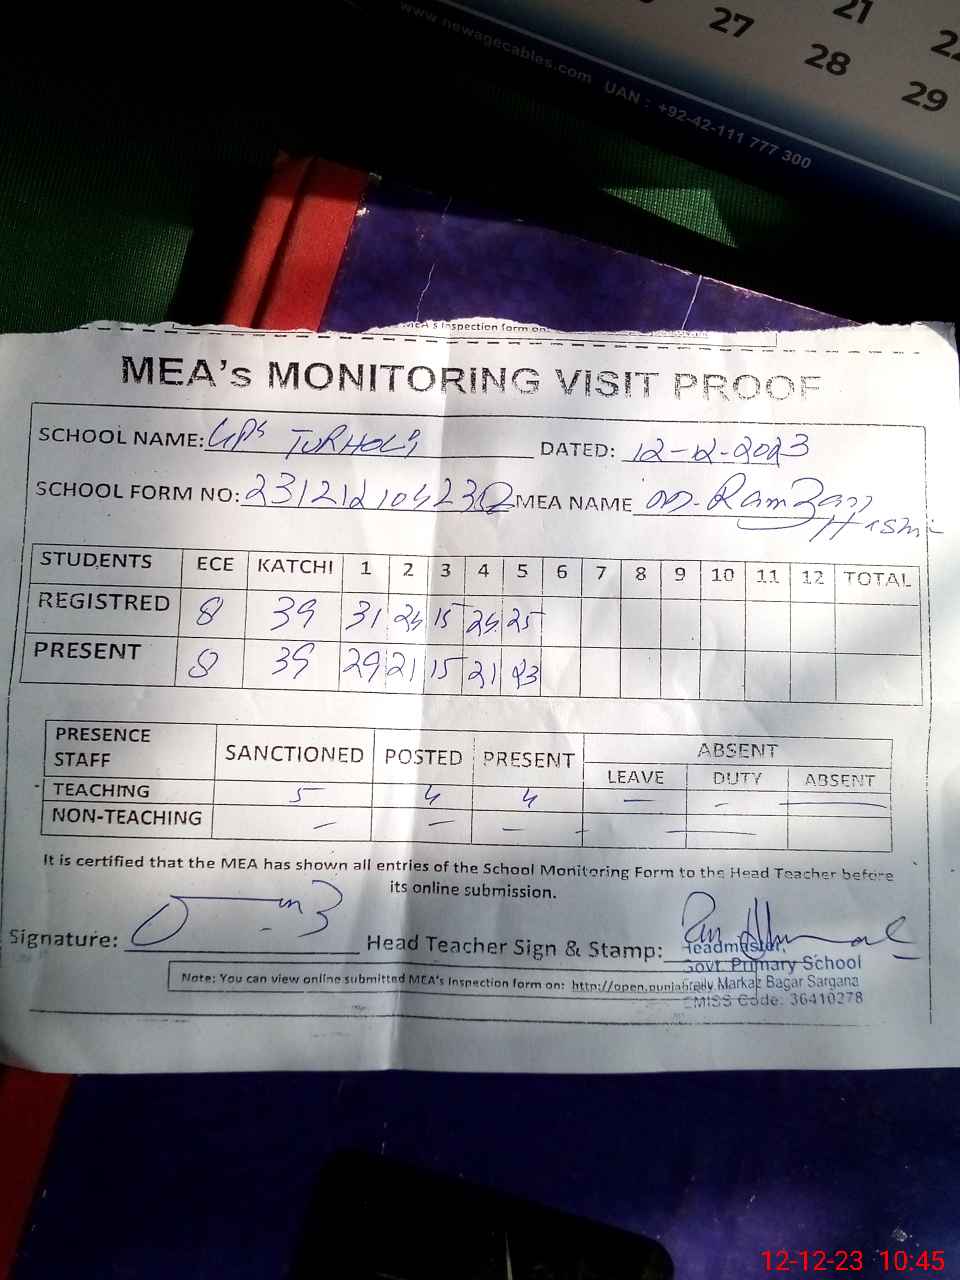 21
27
22
28
29
www.newagecables.com UAN : +92-42-111 777 300
MEA's Inspection form on:
MEA's MONITORING VISIT PROOF
SCHOOL NAME: GPS TURHOLI DATED: 12-12-2023
SCHOOL FORM NO: MEA NAME M. Ramzan Hasmi
STUDENTS ECE KATCHI 1 2 3 4 5 6 7 8 9 10 11 12 TOTAL
REGISTRED 8 39 31 24 15 24 25
PRESENT 8 39 29 21 15 21 23
PRESENCE STAFF SANCTIONED POSTED PRESENT ABSENT
LEAVE DUTY ABSENT
TEACHING 5 4 4 – – –
NON-TEACHING – – – – –
It is certified that the MEA has shown all entries of the School Monitoring Form to the Head Teacher before
its online submission.
Signature: Head Teacher Sign & Stamp:
Headmaster,
Govt. Primary School
Markaz Bagar Sargana
EMISS Code: 36410278
Note: You can view online submitted MEA's Inspection form on: http://open.punjab
12-12-23 10:45